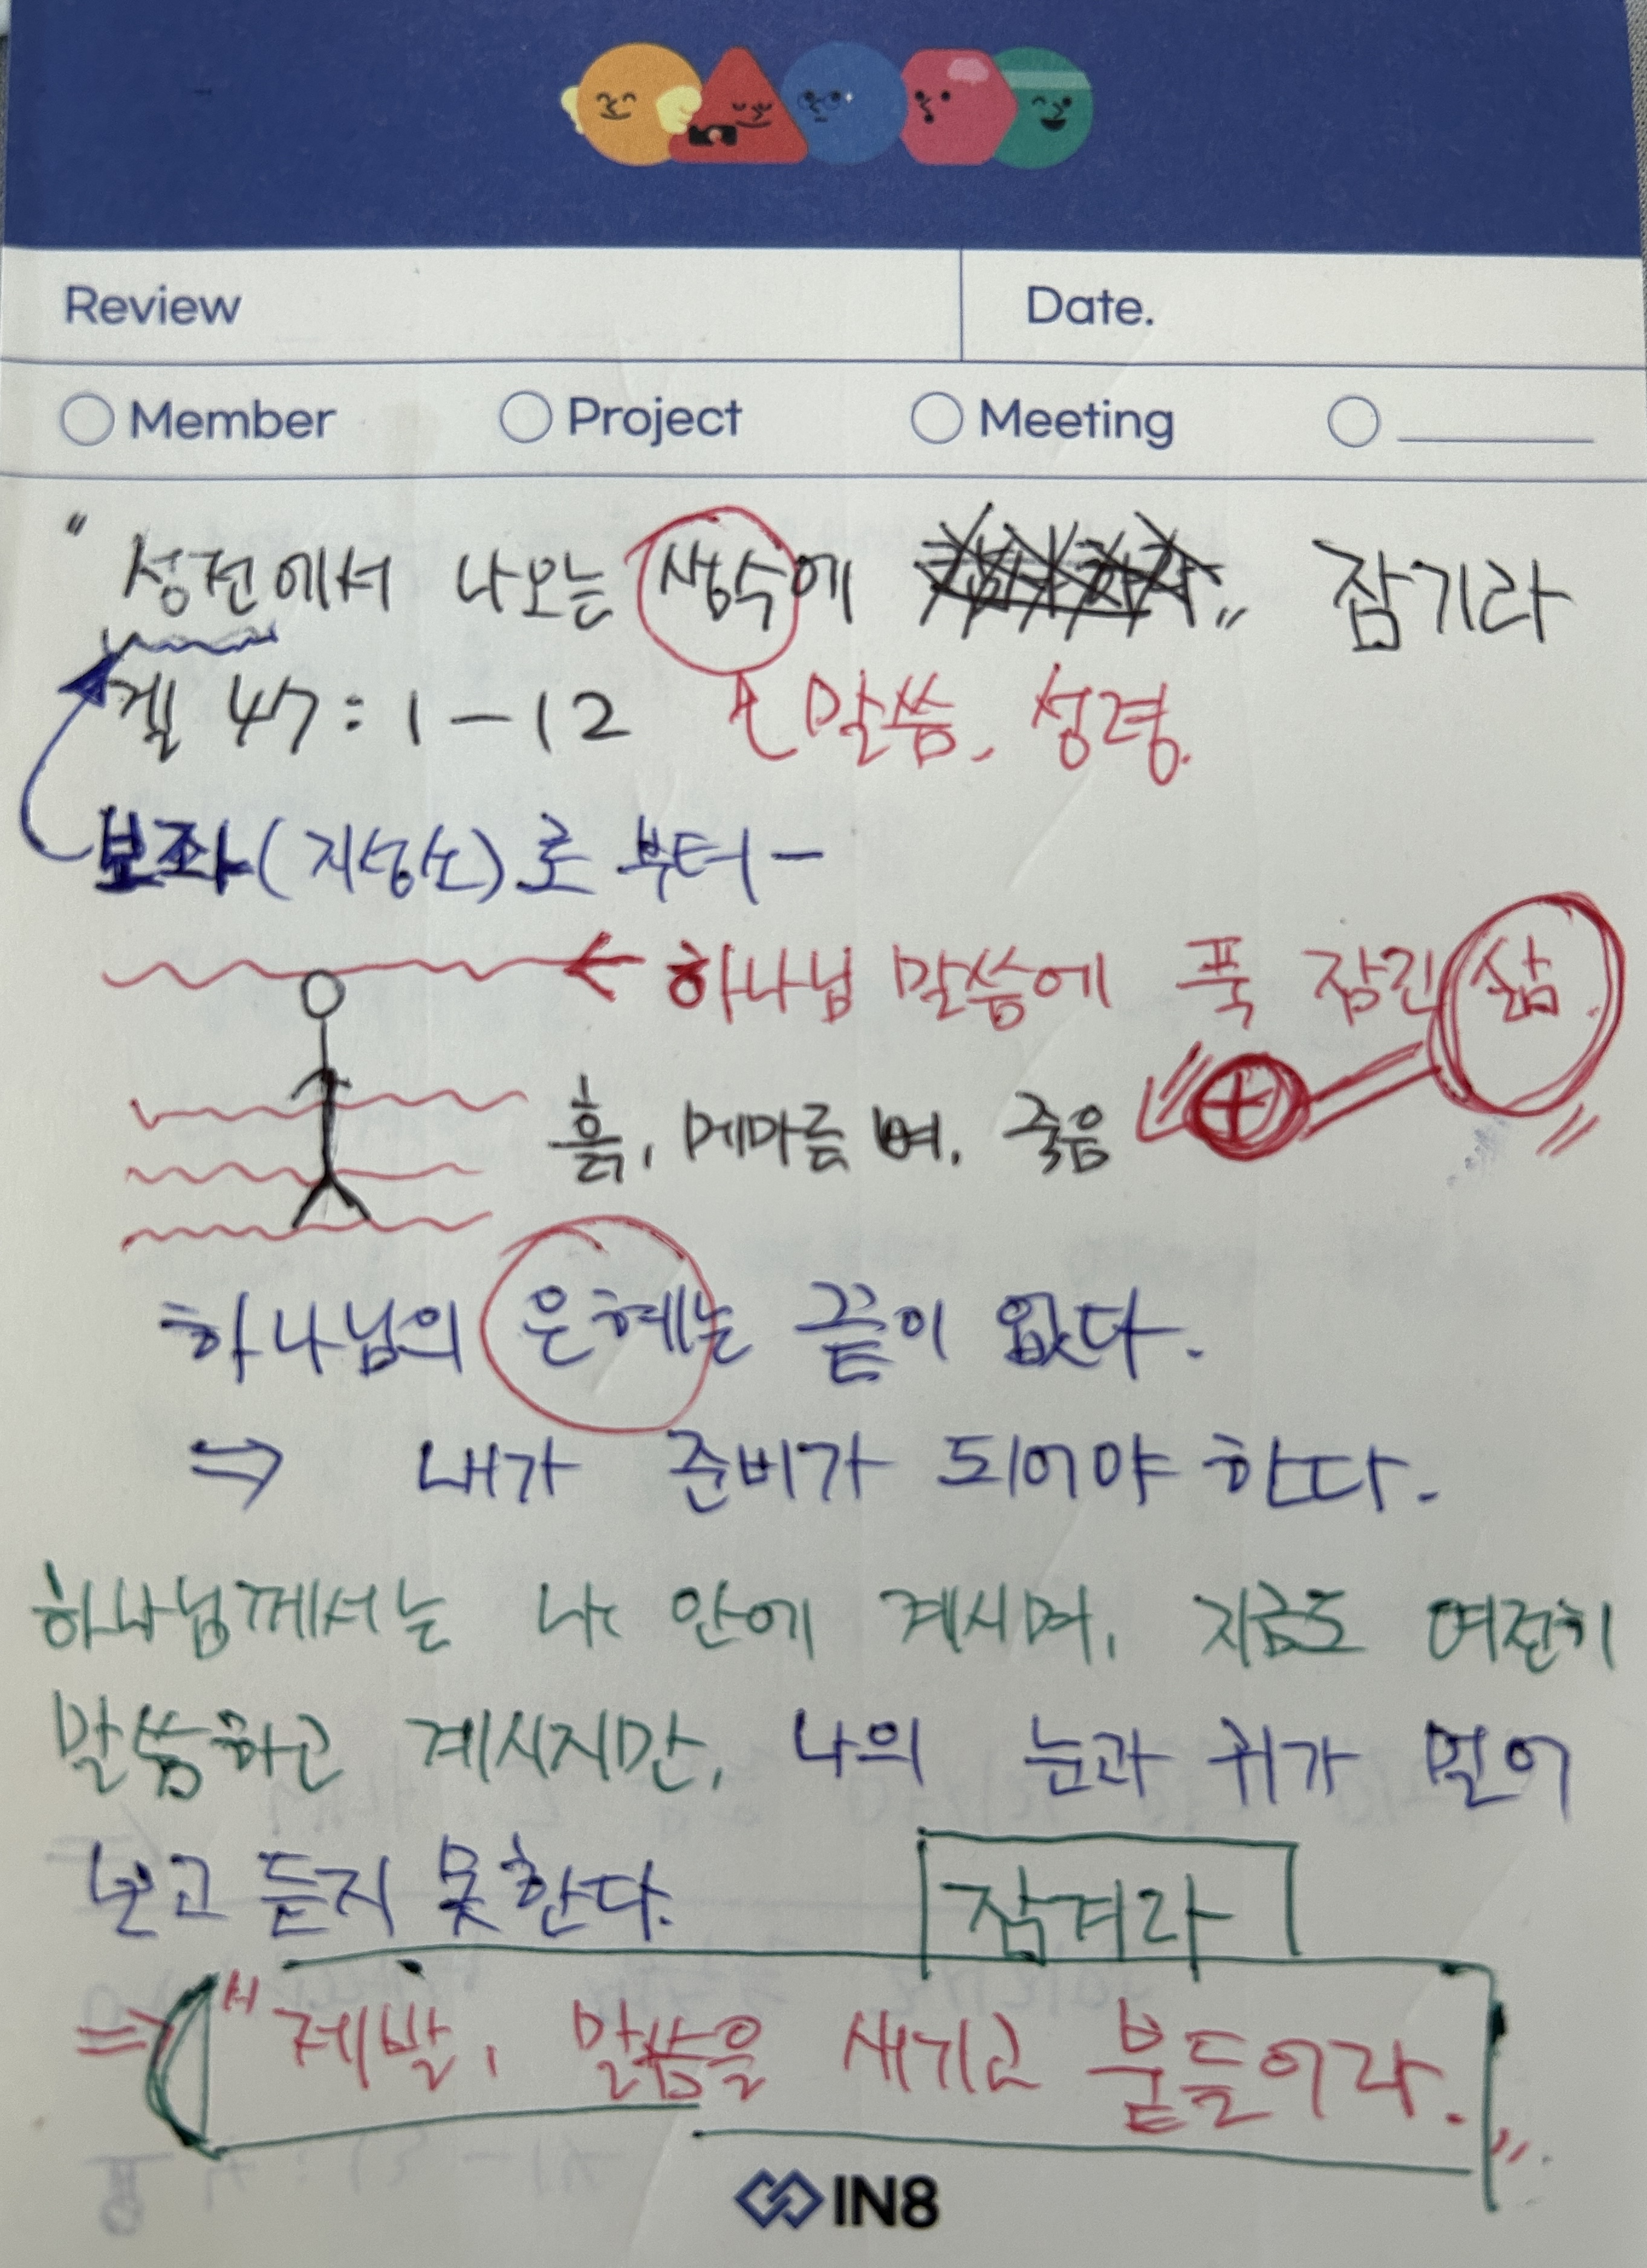 Review Date.
Member Project Meeting
" 성전에서 나오는 생수에 " 잠기라
겔 47:1-12 말씀, 성령.
보좌(지성소)로 부터-
하나님 말씀에 푹 잠긴 삶.
흙, 메마름 뼈, 죽음
하나님의 은혜는 끝이 없다.
⇒ 내가 준비가 되어야 한다.
하나님께서는 내 안에 계시며, 지금도 여전히
말씀하고 계시지만, 나의 눈과 귀가 멀어
보고 듣지 못한다. 잠겨라
⇒ "제발, 말씀을 새기고 붙들어라."
IN8